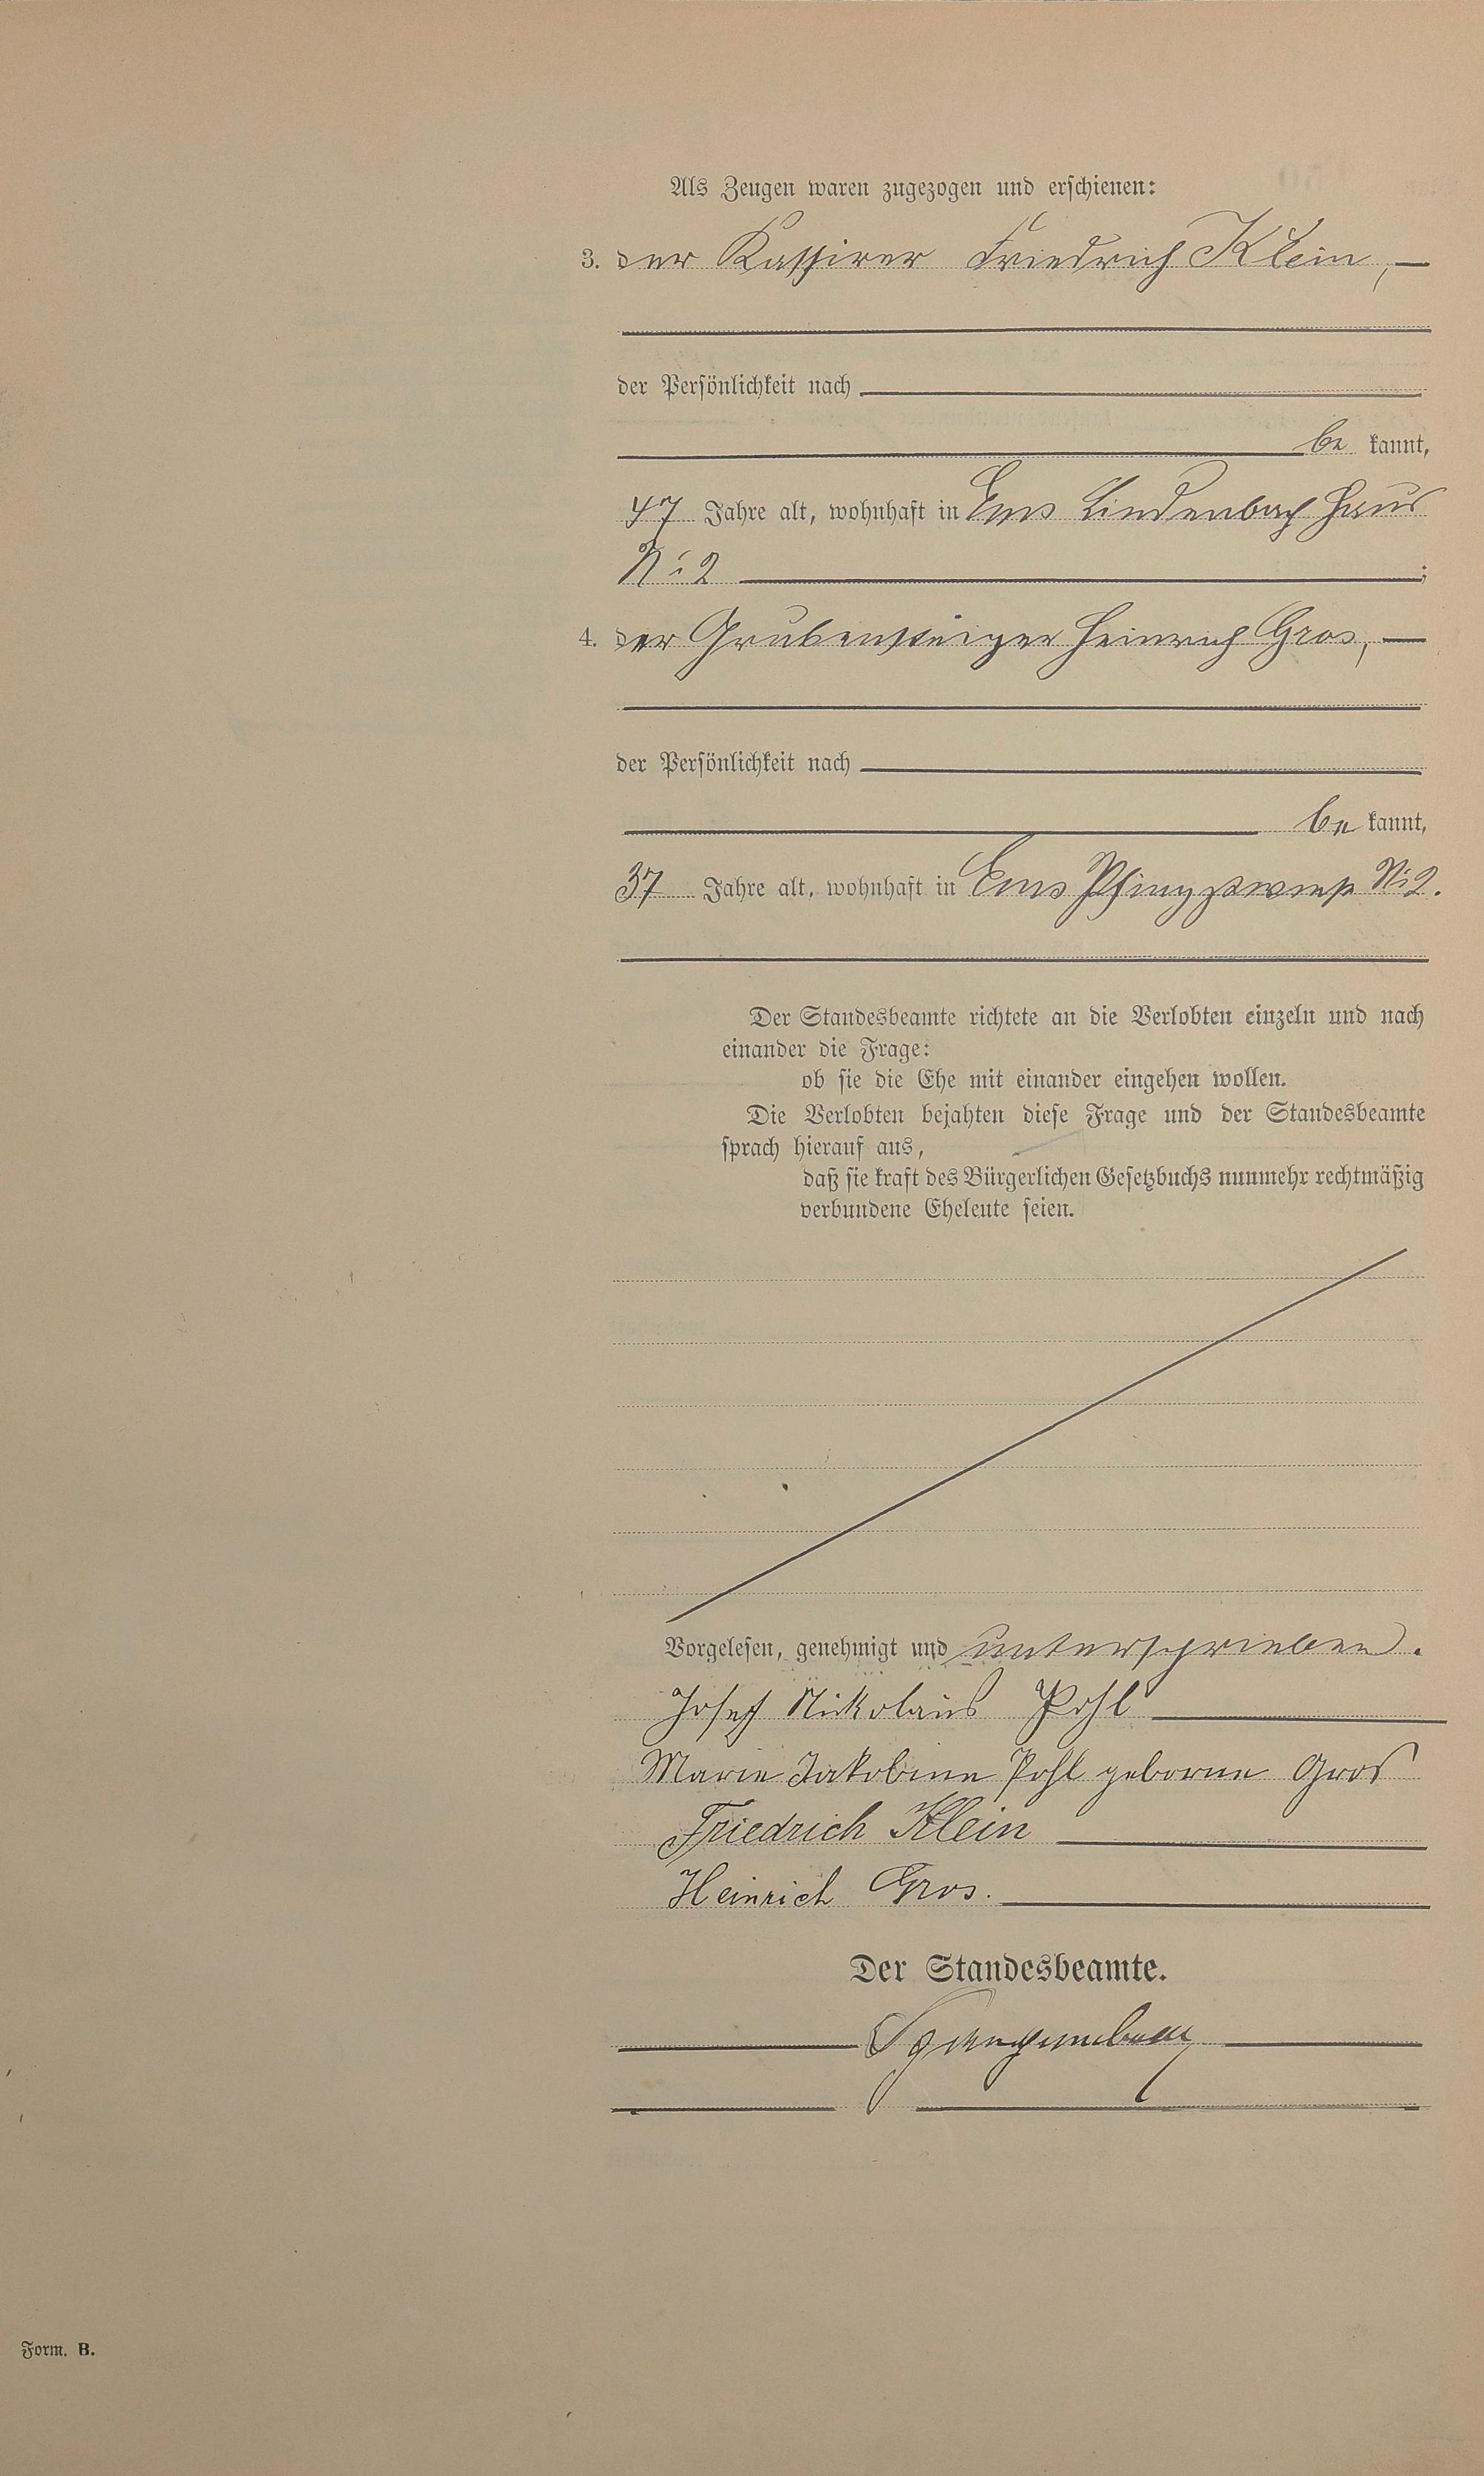 Als Zeugen waren zugezogen und erschienen:
3. der Kassirer Friedrich Klein,
der Persönlichkeit nach
be kannt,
47 Jahre alt, wohnhaft in Ems Lindenbach Haus
No 2 ;
4. der Grubensteiger Heinrich Gros,
der Persönlichkeit nach
be kannt,
37 Jahre alt, wohnhaft in Ems Pfingstwiese No 2.
Der Standesbeamte richtete an die Verlobten einzeln und nach
einander die Frage:
ob sie die Ehe mit einander eingehen wollen.
Die Verlobten bejahten diese Frage und der Standesbeamte
sprach hierauf aus,
daß sie kraft des Bürgerlichen Gesetzbuchs nunmehr rechtmäßig
verbundene Eheleute seien.
Vorgelesen, genehmigt und unterschrieben.
Josef Nikolaus Pohl
Marie Jakobine Pohl geborne Gros
Friedrich Klein
Heinrich Gros.
Der Standesbeamte.
Form. B.